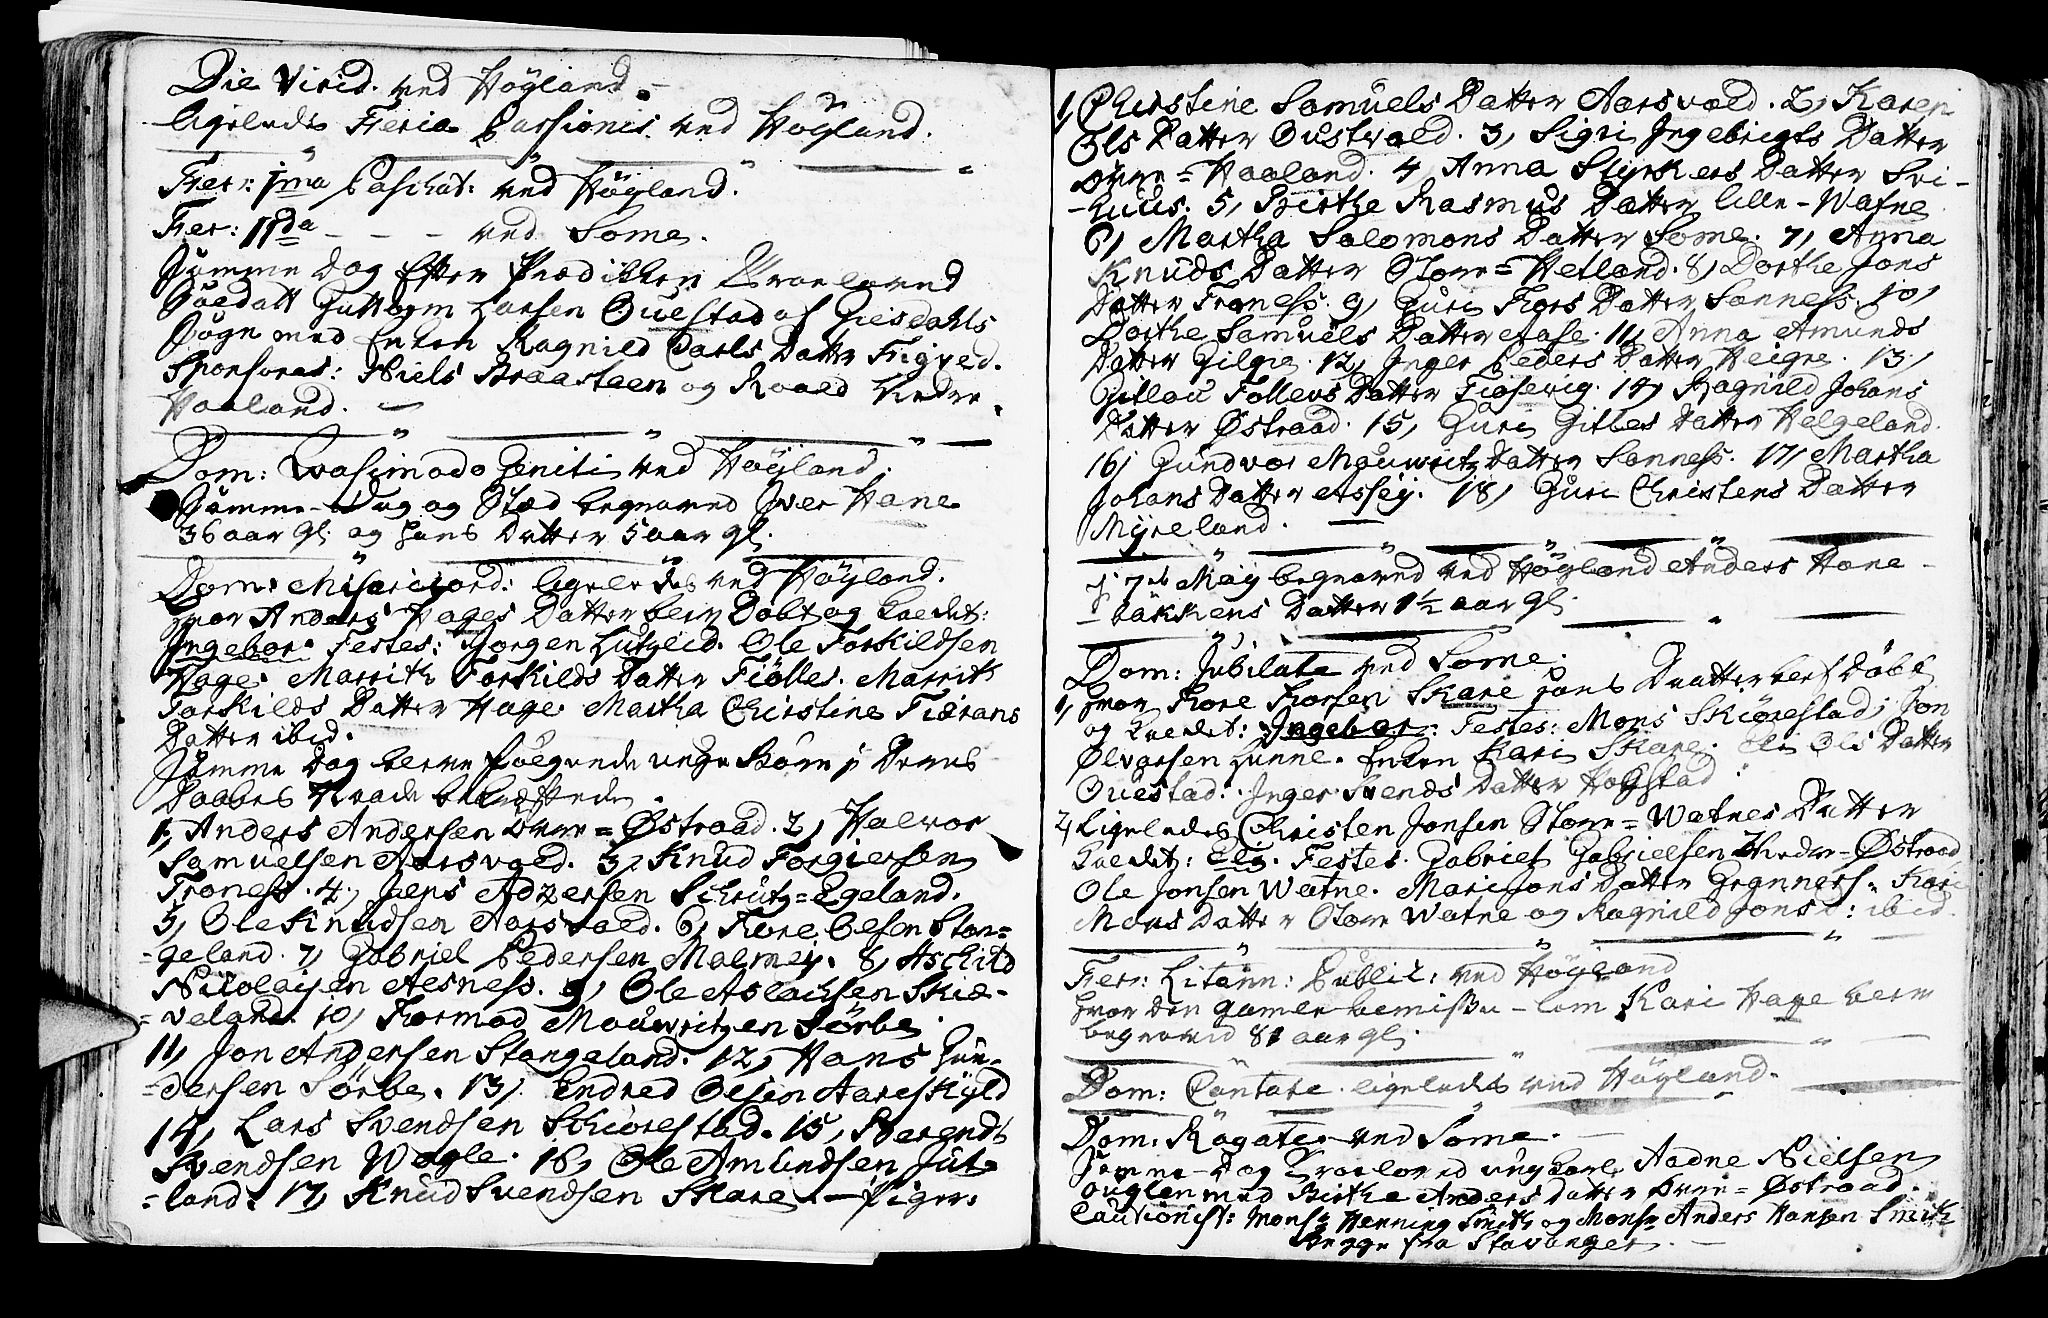 Die Virid. ved Höyland.
ligeledes Feria Passionis ved Höyland.
Fer: 1ma Paschat: ved Höyland.
Fer: IIda - - - ved Some.
Samme Dag Efter Prædiken Trolovend
Guttorm Larsen Ouestad af Giesdahls
Sogn med Enken Ragnild Carls Datter Figved.
Sponsores: Niels Braasteen og Roald Nedre
Haaland.
Dom: Qvasimodo Geniti ved Höyland.
Samme Dag og Stæd begraved Iver Hane
36 aar gl: og hans Datter 5 aar gl.
Dom: Misericord: ligeledes ved Höyland.
hvor Anders Hages Datter blev Döbt og kaldet:
Ingebor. Testes: Jorgen Lutzeid. Ole Torkildsen
Hage. Marrith Torkilds Datter Fiölle. Marrith
Torkilds Datter Hage. Martha Christine Tiærans
Datter ibid.
Samme Dag bleve fölgende unge Börn i Deres
Daabes Naade bekræftede.
1, Anders Andersen övre=Östraad. 2, Halvor
Samuelsen Aarsvold. 3, Knud Torgiersen
Troness. 4, Jens Adzersen Schrutz=Egeland.
5, Ole Knudsen Aarsvold. 6, Tore Olsen Stan=
=geland. 7, Gabriel Pedersen Malmey. 8, Aschild
Nicolaysen Aesness. 9, Ole Aslachsen Skiæ-
=veland. 10, Tormod Mouwritzen Sörbø.
11, Jon Andersen Stangeland. 12, Hans Gun=
=dersen Sörbø. 13, Endred Olsen Aareskiold
14, Lars Svendsen Schiörestad. 15, Berendt
Svendsen Wogle. 16, Ole Amundsen Jut=
=land. 17, Knud Svendsen Skare. - Piger:
1, Christine Samuels Datter Aarsvold. 2, Karen
Ols Datter Oustvold. 3, Sigri Ingebrigts Datter
övre=Haaland. 4, Anna Styrkers Datter Svi-
-huus. 5, Birthe Rasmus Datter lille-Watne
6, Martha Salomons Datter Some. 7, Anna
Knuds Datter Store=Hetland. 8, Dorthe Jons
Datter Troness. 9, Guri Tors Datter Sonness. 10,
Dorthe Samuels Datter Aase. 11, Anna Amunds
Datter Gilgie. 12, Inger Peders Datter Heigre. 13,
Gitlau Tollevs Datter Tiosevig. 14, Ragnild Johans
Datter Østraad. 15, Guri Gitles Datter Helgeland.
16, Gundvor Mouwritz Datter Sonness. 17, Martha
Johans Datter Assöy. 18, Guri Christens Datter
Myreland.
d. 7de May begraved ved Höyland Anders Hane-
-bakkens Datter 1½ aar gl.
Dom: Jubilate ved Some.
1, hvor Tore Torsen Skare hans Daatter blef Döbt
og kaldet: Ingebor. Testes: Mons Skiörestad; Jon
Olvorsen Lunne. Enken Kari Skare. Eli Ols Datter
Ouestad. Inger Svends Datter Hogstad
2, Ligeledes Christen Jonsen Store=Watnes Datter
kaldet: Testes. Gabriel Gabrielsen Nedre=Østraad
Ole Jonsen Watne. Mari Jons Datter Kari
Mons Datter Store Watne og Ragnild Jons D: ibid.
Fer: Litann: Public: ved Höyland
hvor den gamle Kari Hage blev
begraved 81 aar gl:
Dom: Cantate. ligeledes ved Höyland.
Dom: Rogate. ved Some.
Samme-Dag Troloved ungkarl Aadne Nielsen
Ouglen med Birthe Anders Datter övre=Østraad.
Cautionist: Monsr Henning Smith og Monsr Anders Hansen Smith
begge fra Stavanger.